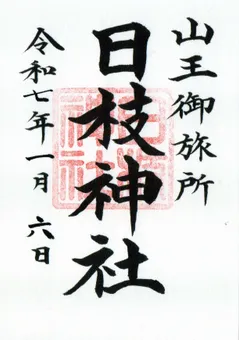 山王御旅所
日枝神社
令和七年一月六日